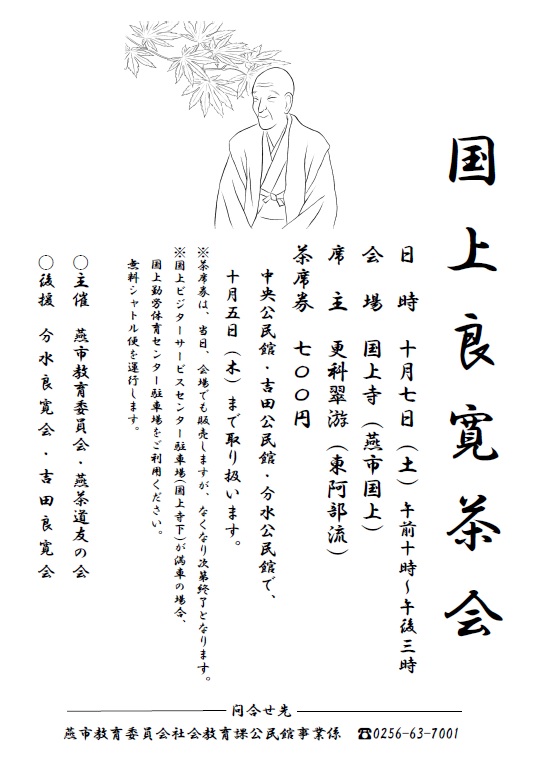 国上良寛茶会
日時 十月七日（土）午前十時～午後三時
会場 国上寺（燕市国上）
席主 更科翠游（東阿部流）
茶席券 七〇〇円
中央公民館・吉田公民館・分水公民館で、
十月五日（木）まで取り扱います。
※茶席券は、当日、会場でも販売しますが、なくなり次第終了となります。
※国上ビジターサービスセンター駐車場(国上寺下)が満車の場合、
国上勤労体育センター駐車場をご利用ください。
無料シャトル便を運行します。
〇主催 燕市教育委員会・燕茶道友の会
〇後援 分水良寛会・吉田良寛会
問合せ先
燕市教育委員会社会教育課公民館事業係 ☎0256-63-7001